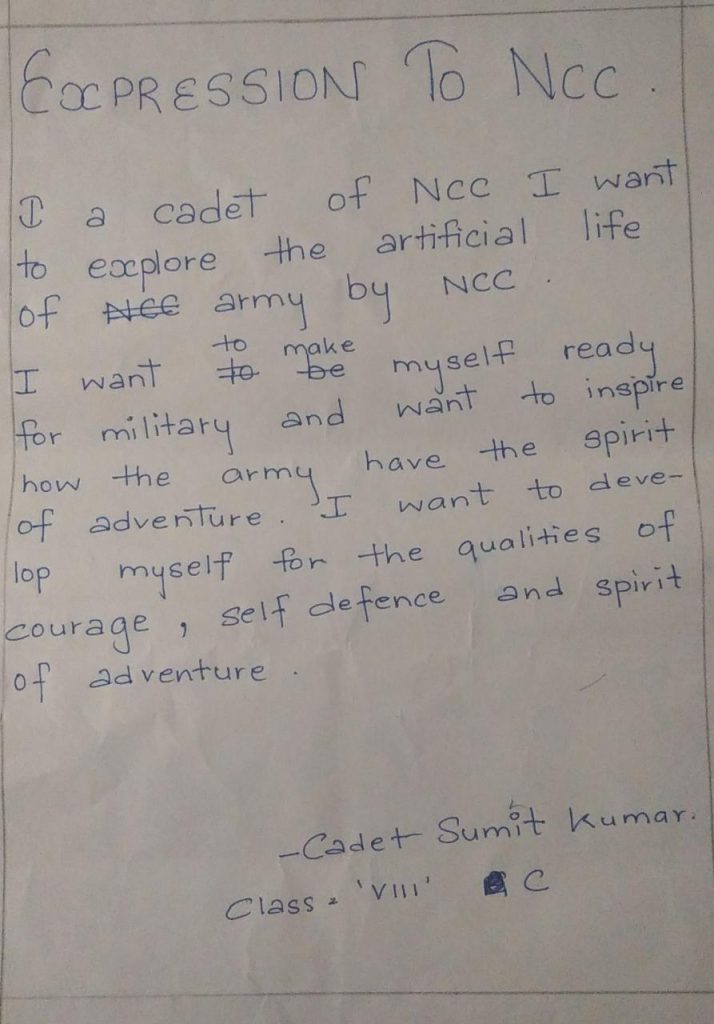 EXPRESSION TO NCC.
I a cadet of NCC I want
to explore the artificial life
of NCC army by NCC.
to make
I want to be myself ready
for military and want to inspire
how the army have the spirit
of adventure. I want to deve-
lop myself for the qualities of
courage, self defence and spirit
of adventure.
-Cadet Sumit Kumar.
Class = 'VIII' C